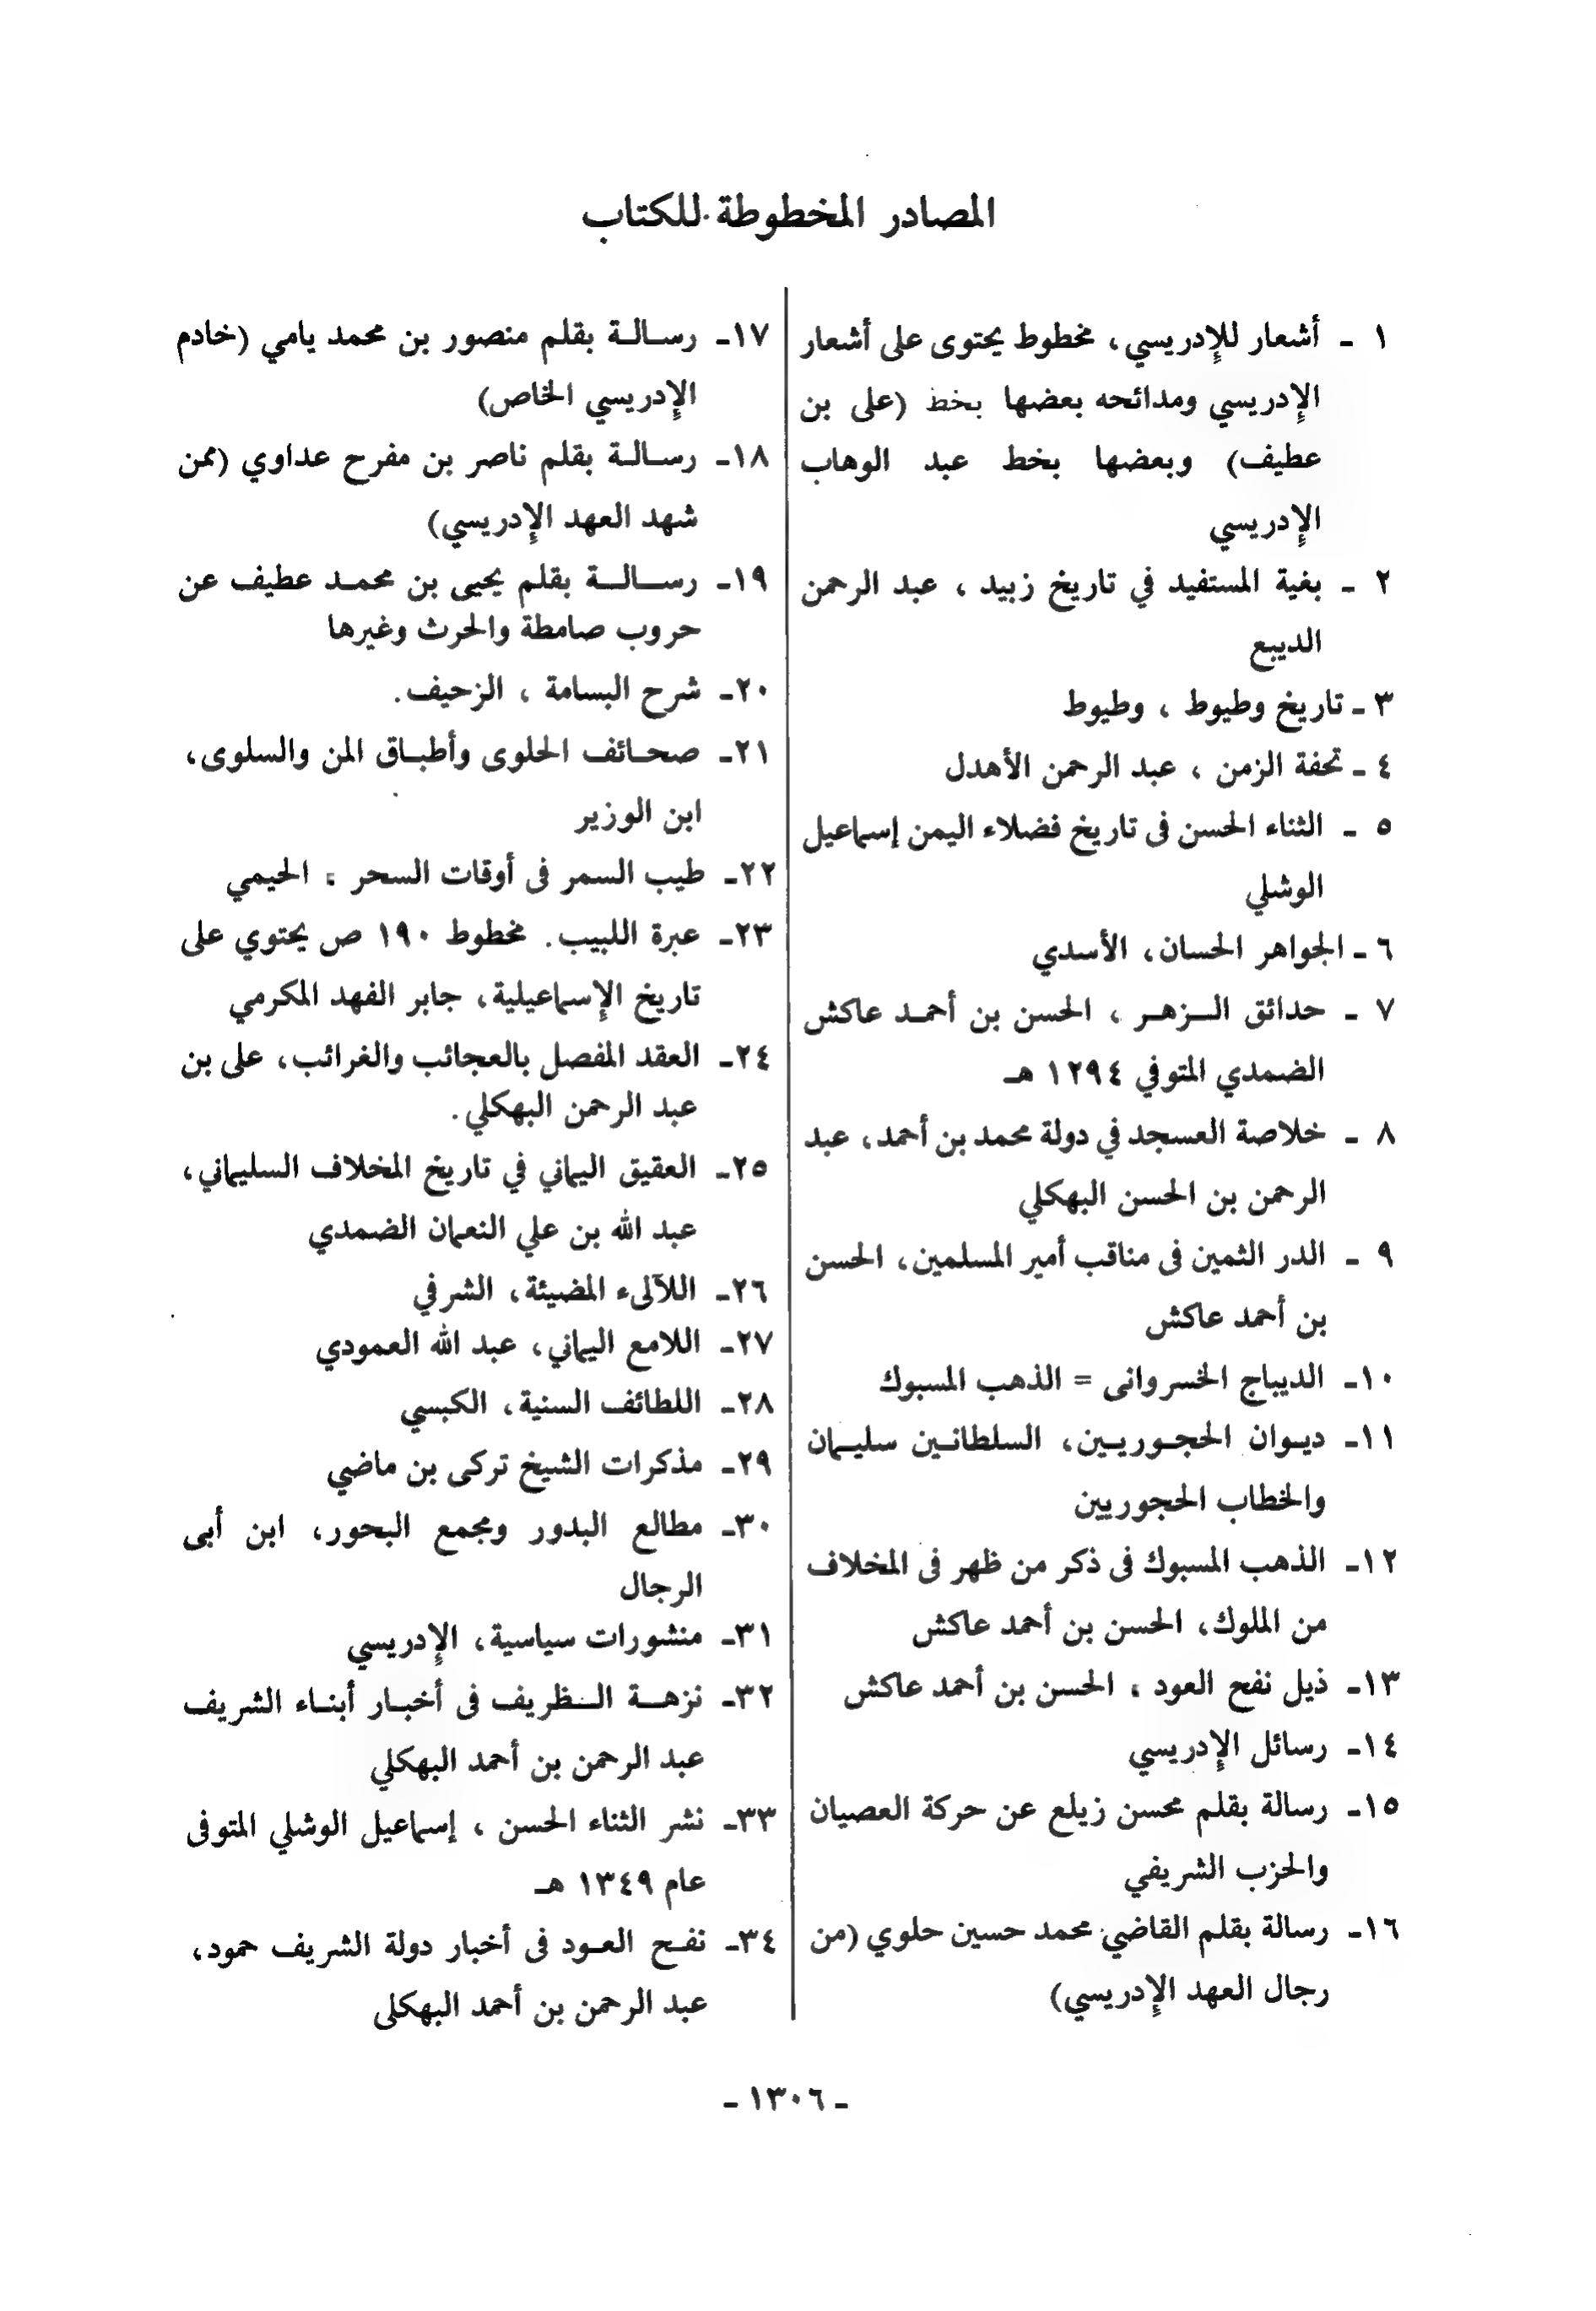 المصادر المخطوطة للكتاب
١ ـ أشعار للإدريسي، مخطوط يحتوى على أشعار
الإدريسي ومدائحه بعضها بخط (على بن
عطيف) وبعضها بخط عبد الوهاب
الإدريسي
٢ ـ بغية المستفيد في تاريخ زبيد ، عبد الرحمن
الديبع
٣ ـ تاريخ وطيوط ، وطيوط
٤ ـ تحفة الزمن ، عبد الرحمن الأهدل
٥ ـ الثناء الحسن فى تاريخ فضلاء اليمن إسماعيل
الوشلي
٦ ـ الجواهر الحسان، الأسدي
٧ ـ حدائق الزهر ، الحسن بن أحمد عاكش
الضمدي المتوفي ١٢٩٤ هـ
٨ ـ خلاصة العسجد في دولة محمد بن أحمد، عبد
الرحمن بن الحسن البهكلي
٩ ـ الدر الثمين فى مناقب أمير المسلمين، الحسن
بن أحمد عاكش
١٠ـ الديباج الخسروانى = الذهب المسبوك
١١ـ ديوان الحجوريين، السلطانين سليمان
والخطاب الحجوريين
١٢ـ الذهب المسبوك فى ذكر من ظهر فى المخلاف
من الملوك، الحسن بن أحمد عاكش
١٣ـ ذيل نفح العود ، الحسن بن أحمد عاكش
١٤ـ رسائل الإدريسي
١٥ـ رسالة بقلم محسن زيلع عن حركة العصيان
والحزب الشريفي
١٦ـ رسالة بقلم القاضي محمد حسين حلوي (من
رجال العهد الإدريسي)
١٧ـ رسالة بقلم منصور بن محمد يامي (خادم
الإدريسي الخاص)
١٨ـ رسالة بقلم ناصر بن مفرح عداوي (ممن
شهد العهد الإدريسي)
١٩ـ رسالة بقلم يحيى بن محمد عطيف عن
حروب صامطة والحرث وغيرها
٢٠ـ شرح البسامة ، الزحيف.
٢١ـ صحائف الحلوى وأطباق المن والسلوى،
ابن الوزير
٢٢ـ طيب السمر فى أوقات السحر ، الحيمي
٢٣ـ عبرة اللبيب. مخطوط ١٩٠ ص يحتوي على
تاريخ الإسماعيلية، جابر الفهد المكرمي
٢٤ـ العقد المفصل بالعجائب والغرائب، على بن
عبد الرحمن البهكلي.
٢٥ـ العقيق اليماني في تاريخ المخلاف السليماني،
عبد الله بن علي النعمان الضمدي
٢٦ـ اللآلىء المضيئة، الشرفي
٢٧ـ اللامع اليماني، عبد الله العمودي
٢٨ـ اللطائف السنية، الكبسي
٢٩ـ مذكرات الشيخ تركى بن ماضي
٣٠ـ مطالع البدور ومجمع البحور، ابن أبى
الرجال
٣١ـ منشورات سياسية، الإدريسي
٣٢ـ نزهة الظريف فى أخبار أبناء الشريف
عبد الرحمن بن أحمد البهكلي
٣٣ـ نشر الثناء الحسن ، إسماعيل الوشلي المتوفى
عام ١٣٤٩ هـ
٣٤ـ نفح العود فى أخبار دولة الشريف حمود،
عبد الرحمن بن أحمد البهكلى
ـ ١٣٠٦ ـ